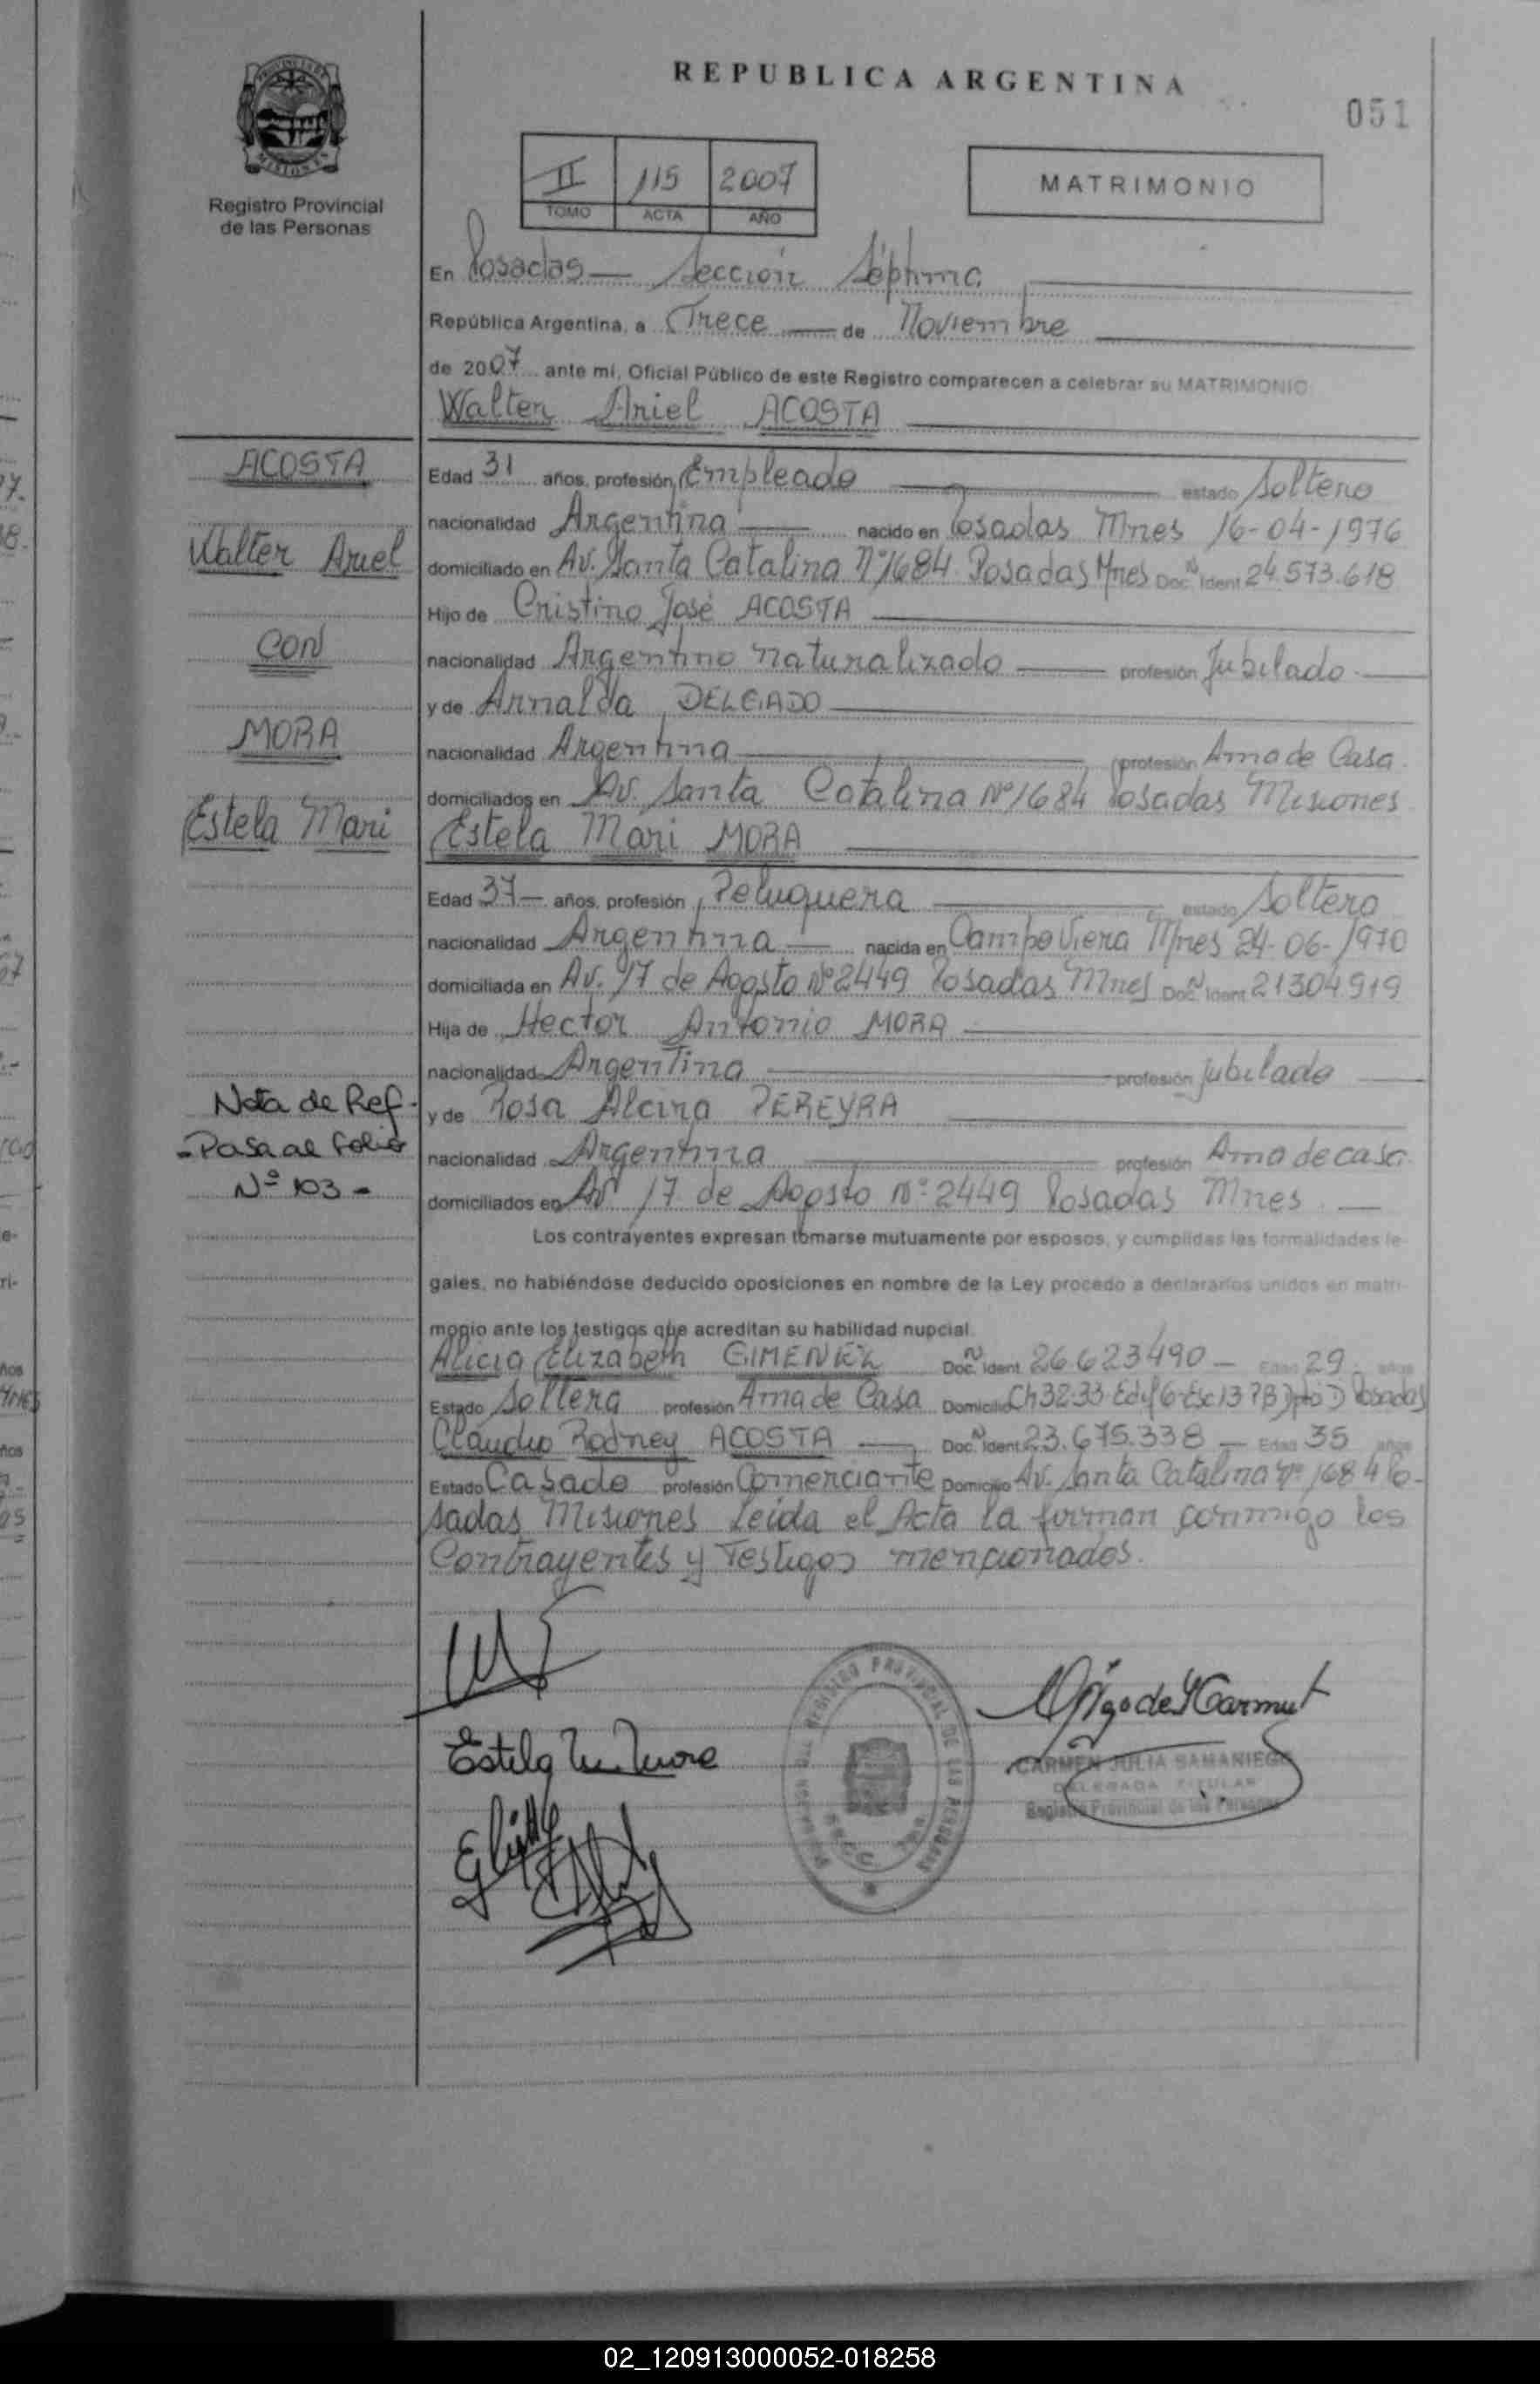 REPUBLICA ARGENTINA
051
Registro Provincial
de las Personas
II 115 2007
TOMO ACTA AÑO
MATRIMONIO
En Posadas — Sección Séptima
República Argentina, a Trece — de Noviembre
de 2007 ante mí, Oficial Público de este Registro comparecen a celebrar su MATRIMONIO
Walter Ariel ACOSTA
ACOSTA
Walter Ariel
CON
MORA
Estela Mari
Edad 31 años, profesión Empleado estado Soltero
nacionalidad Argentina — nacido en Posadas Mnes 16-04-1976
domiciliado en Av. Santa Catalina Nº 1684 Posadas Mnes Doc. Nº Ident 24.573.618
Hijo de Cristino José ACOSTA
nacionalidad Argentino naturalizado — profesión Jubilado
y de Arnalda DELGADO
nacionalidad Argentina profesión Ama de Casa
domiciliados en Av. Santa Catalina Nº 1684 Posadas Misiones
Estela Mari MORA
Edad 37 — años, profesión Peluquera estado Soltera
nacionalidad Argentina — nacida en Campo Viera Mnes 24-06-1970
domiciliada en Av. 17 de Agosto Nº 2449 Posadas Mnes Doc. Nº Ident 21304919
Hija de Hector Antonio MORA
nacionalidad Argentina profesión Jubilado
y de Rosa Alcira PEREYRA
nacionalidad Argentina profesión Ama de casa
domiciliados en Av 17 de Agosto Nº 2449 Posadas Mnes
Nota de Ref.
- Pasa al folio
Nº 103 -
Los contrayentes expresan tomarse mutuamente por esposos, y cumplidas las formalidades le-
gales, no habiéndose deducido oposiciones en nombre de la Ley procedo a declararlos unidos en matri-
monio ante los testigos que acreditan su habilidad nupcial
Alicia Elizabeth GIMENEZ Doc. Nº Ident 26.623490 — Edad 29 años
Estado Soltera profesión Ama de Casa Domicilio Ch 32-33 Edif 6 Esc 13 PB Dpto D Posadas
Claudio Rodney ACOSTA — Doc. Nº Ident 23.675.338 — Edad 35 años
Estado Casado profesión Comerciante Domicilio Av. Santa Catalina Nº 1684 Po-
sadas Misiones Leída el Acta la firman conmigo los
Contrayentes y Testigos mencionados.
Estela M. Mora
REGISTRO PROVINCIAL DE LAS PERSONAS
CARMEN JULIA SAMANIEGO
DELEGADA TITULAR
Registro Provincial de las Personas
02_120913000052-018258